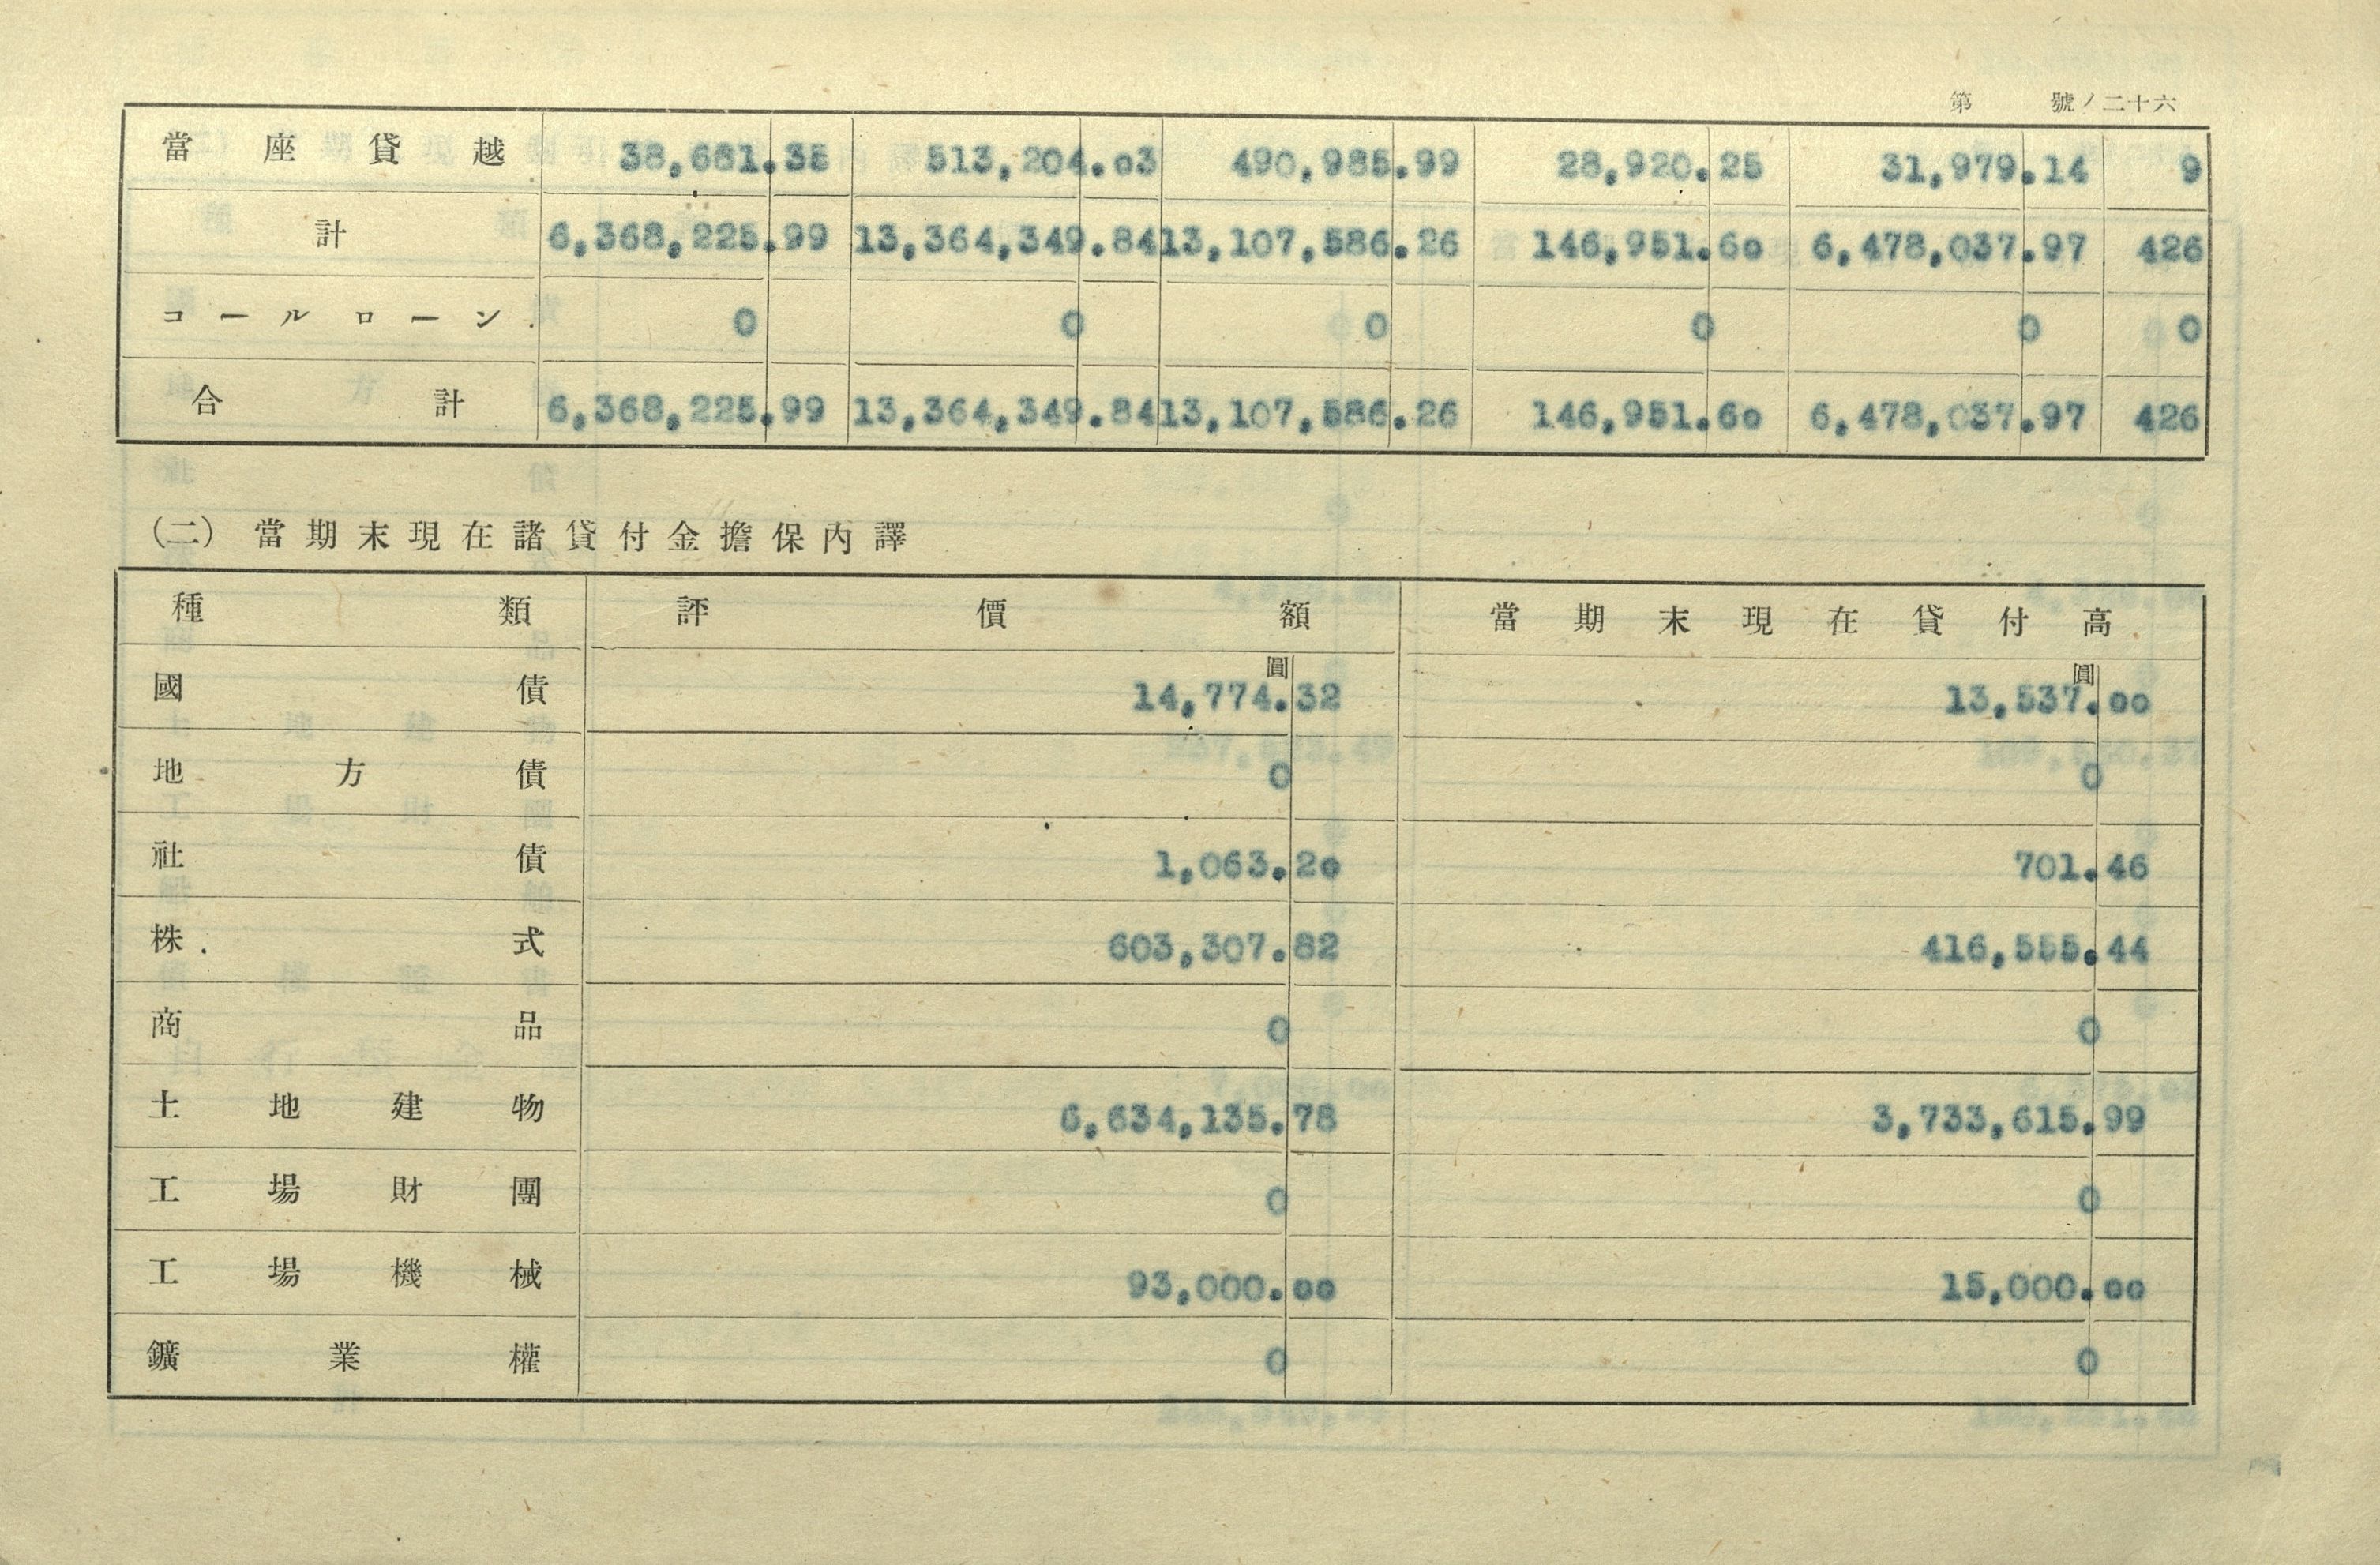 第 號ノ二十六
當座貸越 38,681.35 513,204.03 490,985.99 28,920.25 31,979.14 9
計 6,368,225.99 13,364,349.84 13,107,586.26 146,951.60 6,478,037.97 426
コールローン 0 0 0 0 0 0
合計 6,368,225.99 13,364,349.84 13,107,586.26 146,951.60 6,478,037.97 426
(二) 當期末現在諸貸付金擔保內譯
種類 評價額 當期末現在貸付高
圓 圓
國債 14,774.32 13,537.00
地方債 0 0
社債 1,063.20 701.46
株式 603,307.82 416,555.44
商品 0 0
土地建物 6,634,135.78 3,733,615.99
工場財團 0 0
工場機械 93,000.00 15,000.00
鑛業權 0 0